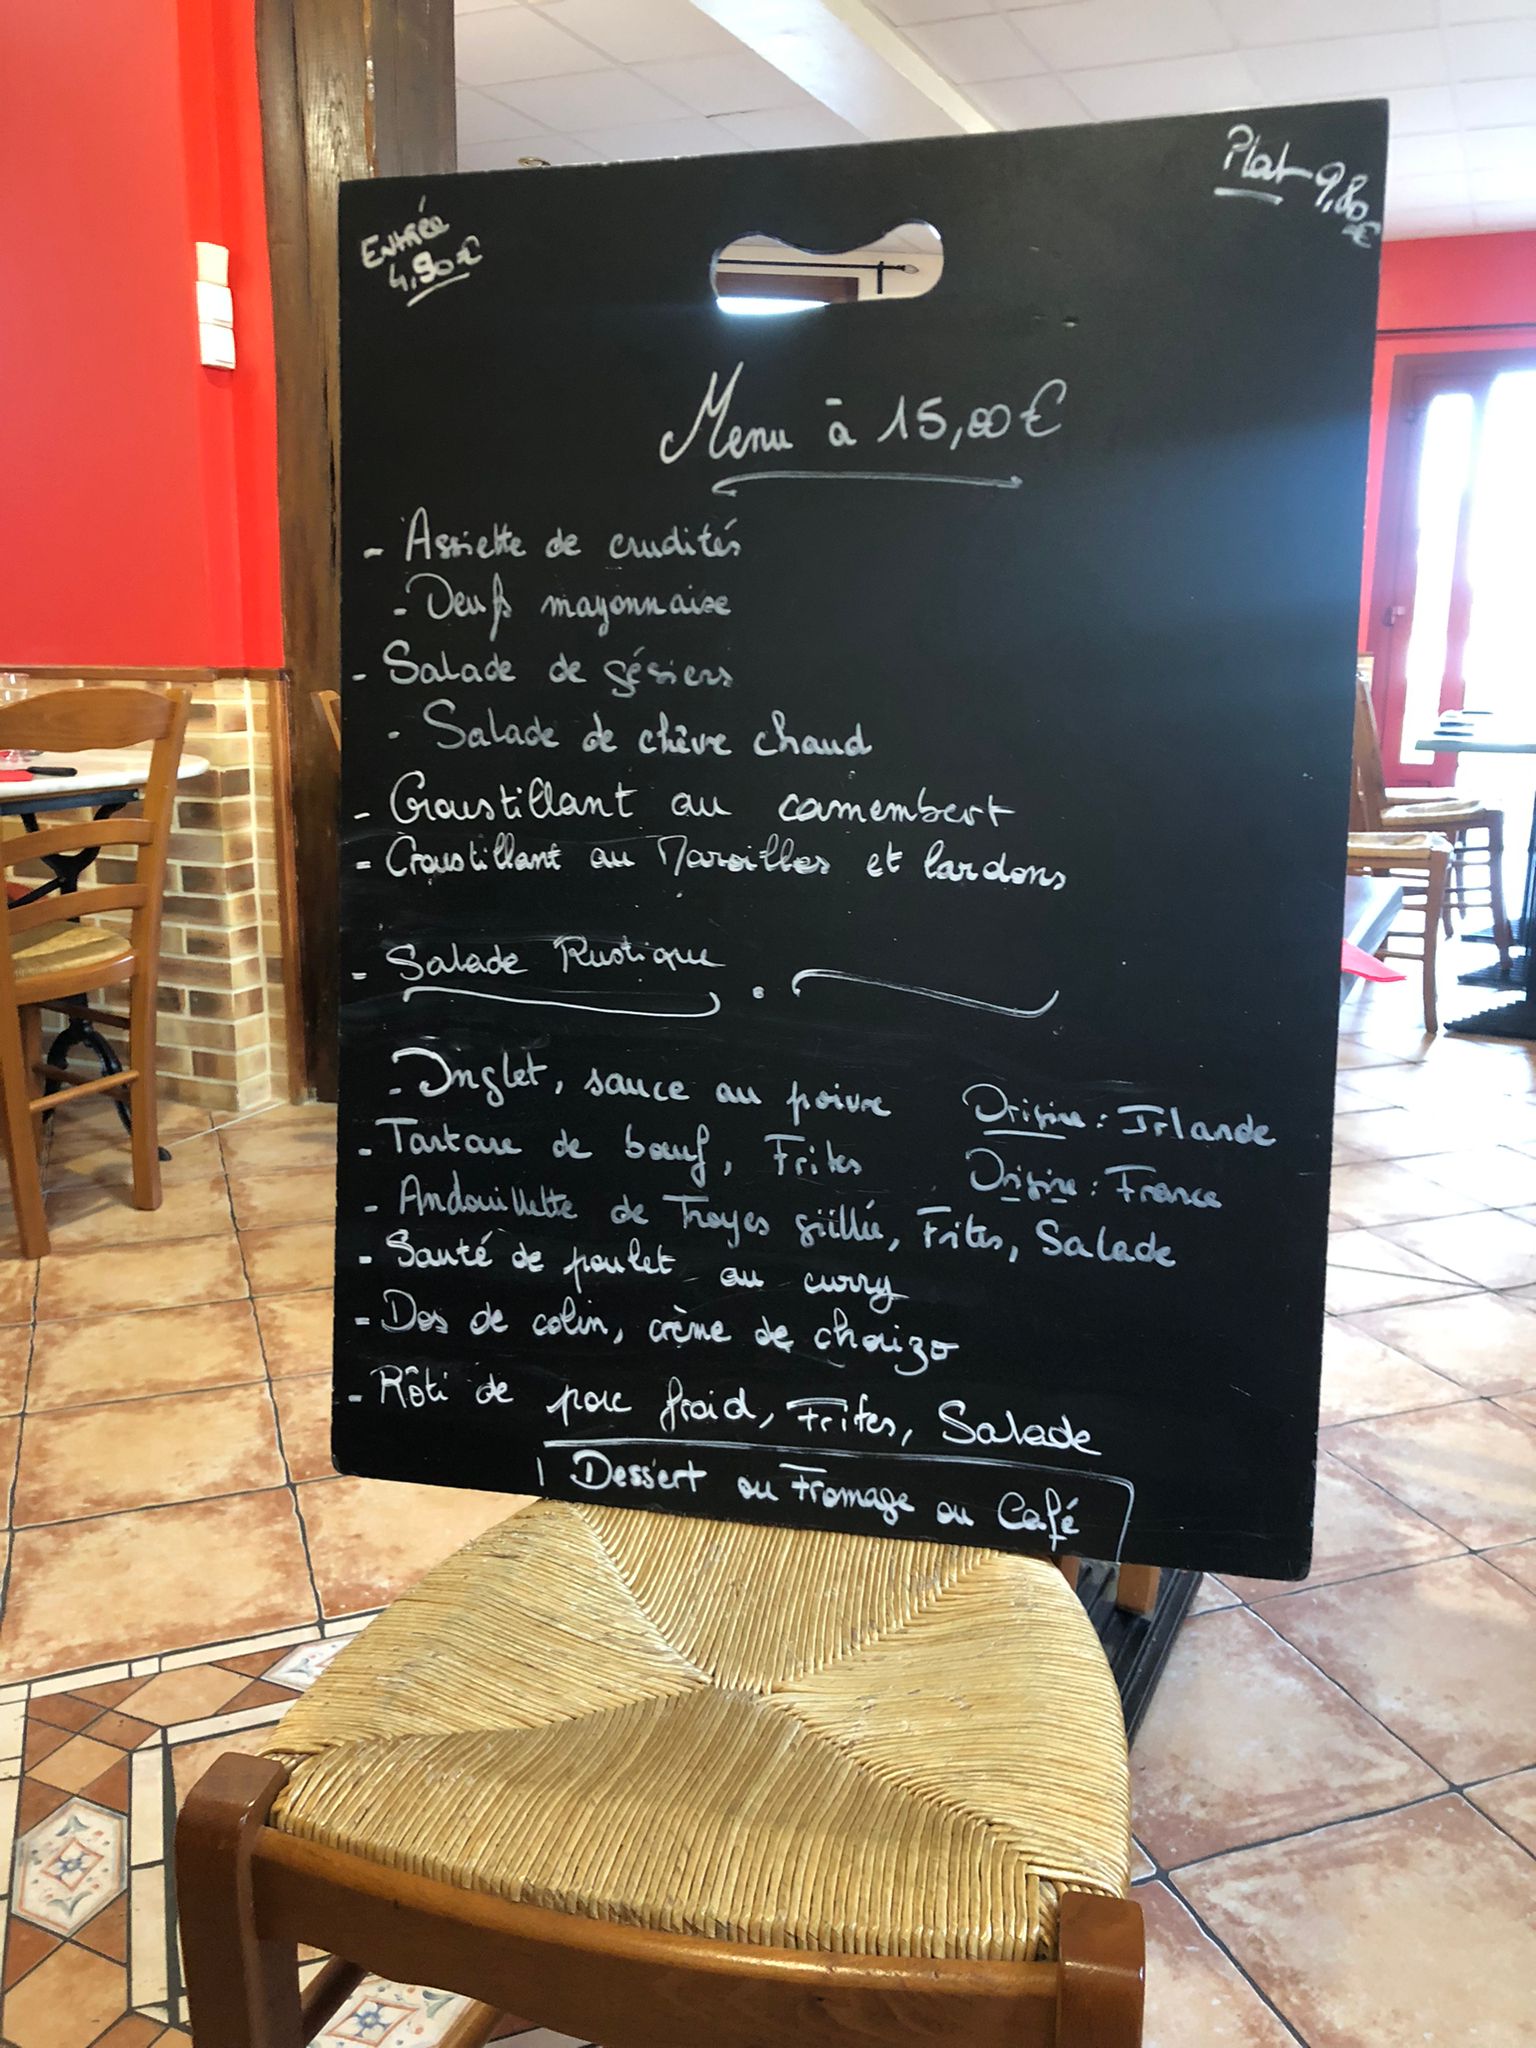 Entrée
4,90€
Plat 9,80
€
Menu à 15,00€
- Assiette de crudités
- Oeufs mayonnaise
- Salade de gésiers
- Salade de chèvre chaud
- Croustillant au camembert
- Croustillant au Maroilles et lardons
- Salade Rustique
- Onglet, sauce au poivre Origine : Irlande
- Tartare de bœuf, Frites Origine : France
- Andouillette de Troyes grillée, Frites, Salade
- Sauté de poulet au curry
- Dos de colin, crème de chorizo
- Rôti de porc froid, Frites, Salade
Dessert ou Fromage ou Café